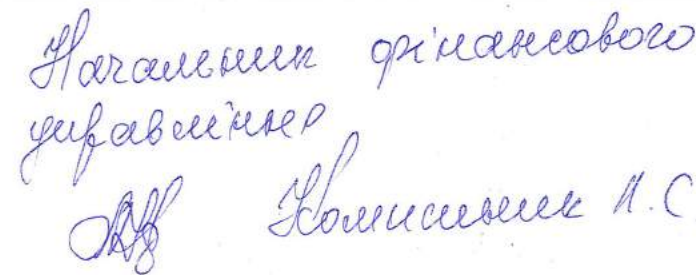 Начальник фінансового
управління
Н.С